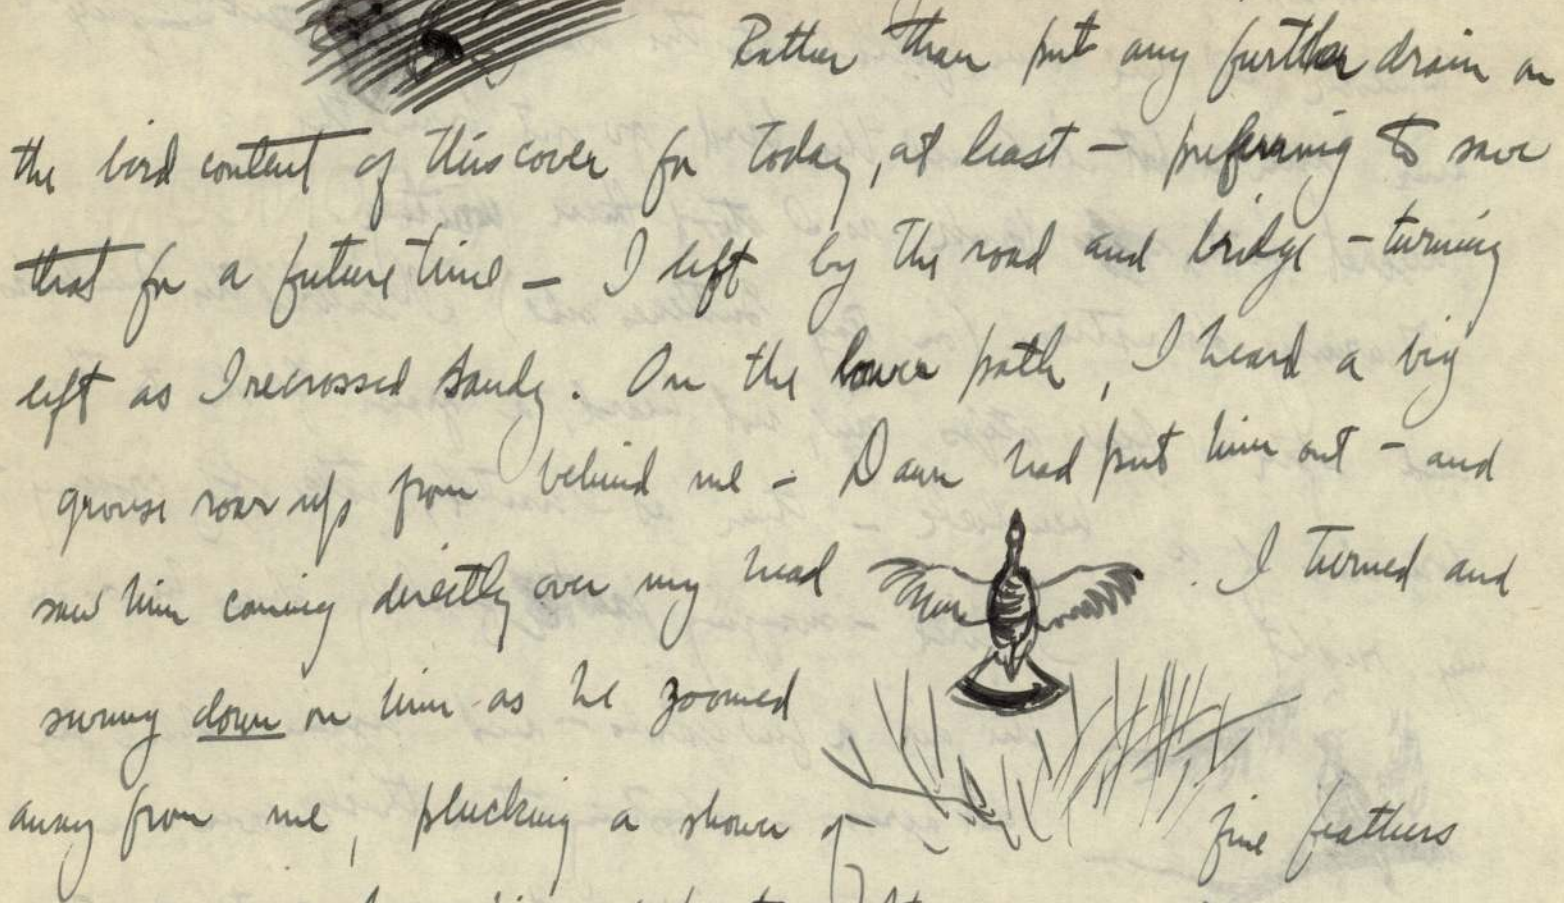 Rather than put any further drain on
the bird content of this cover for today, at least – preferring to save
that for a future time – I left by the road and bridge – turning
left as I recrossed Sandy. On the lower path, I heard a big
grouse roar up from behind me – Dawn had put him out – and
saw him coming directly over my head . I turned and
swung down on him as he zoomed
away from me, plucking a shower of fine feathers